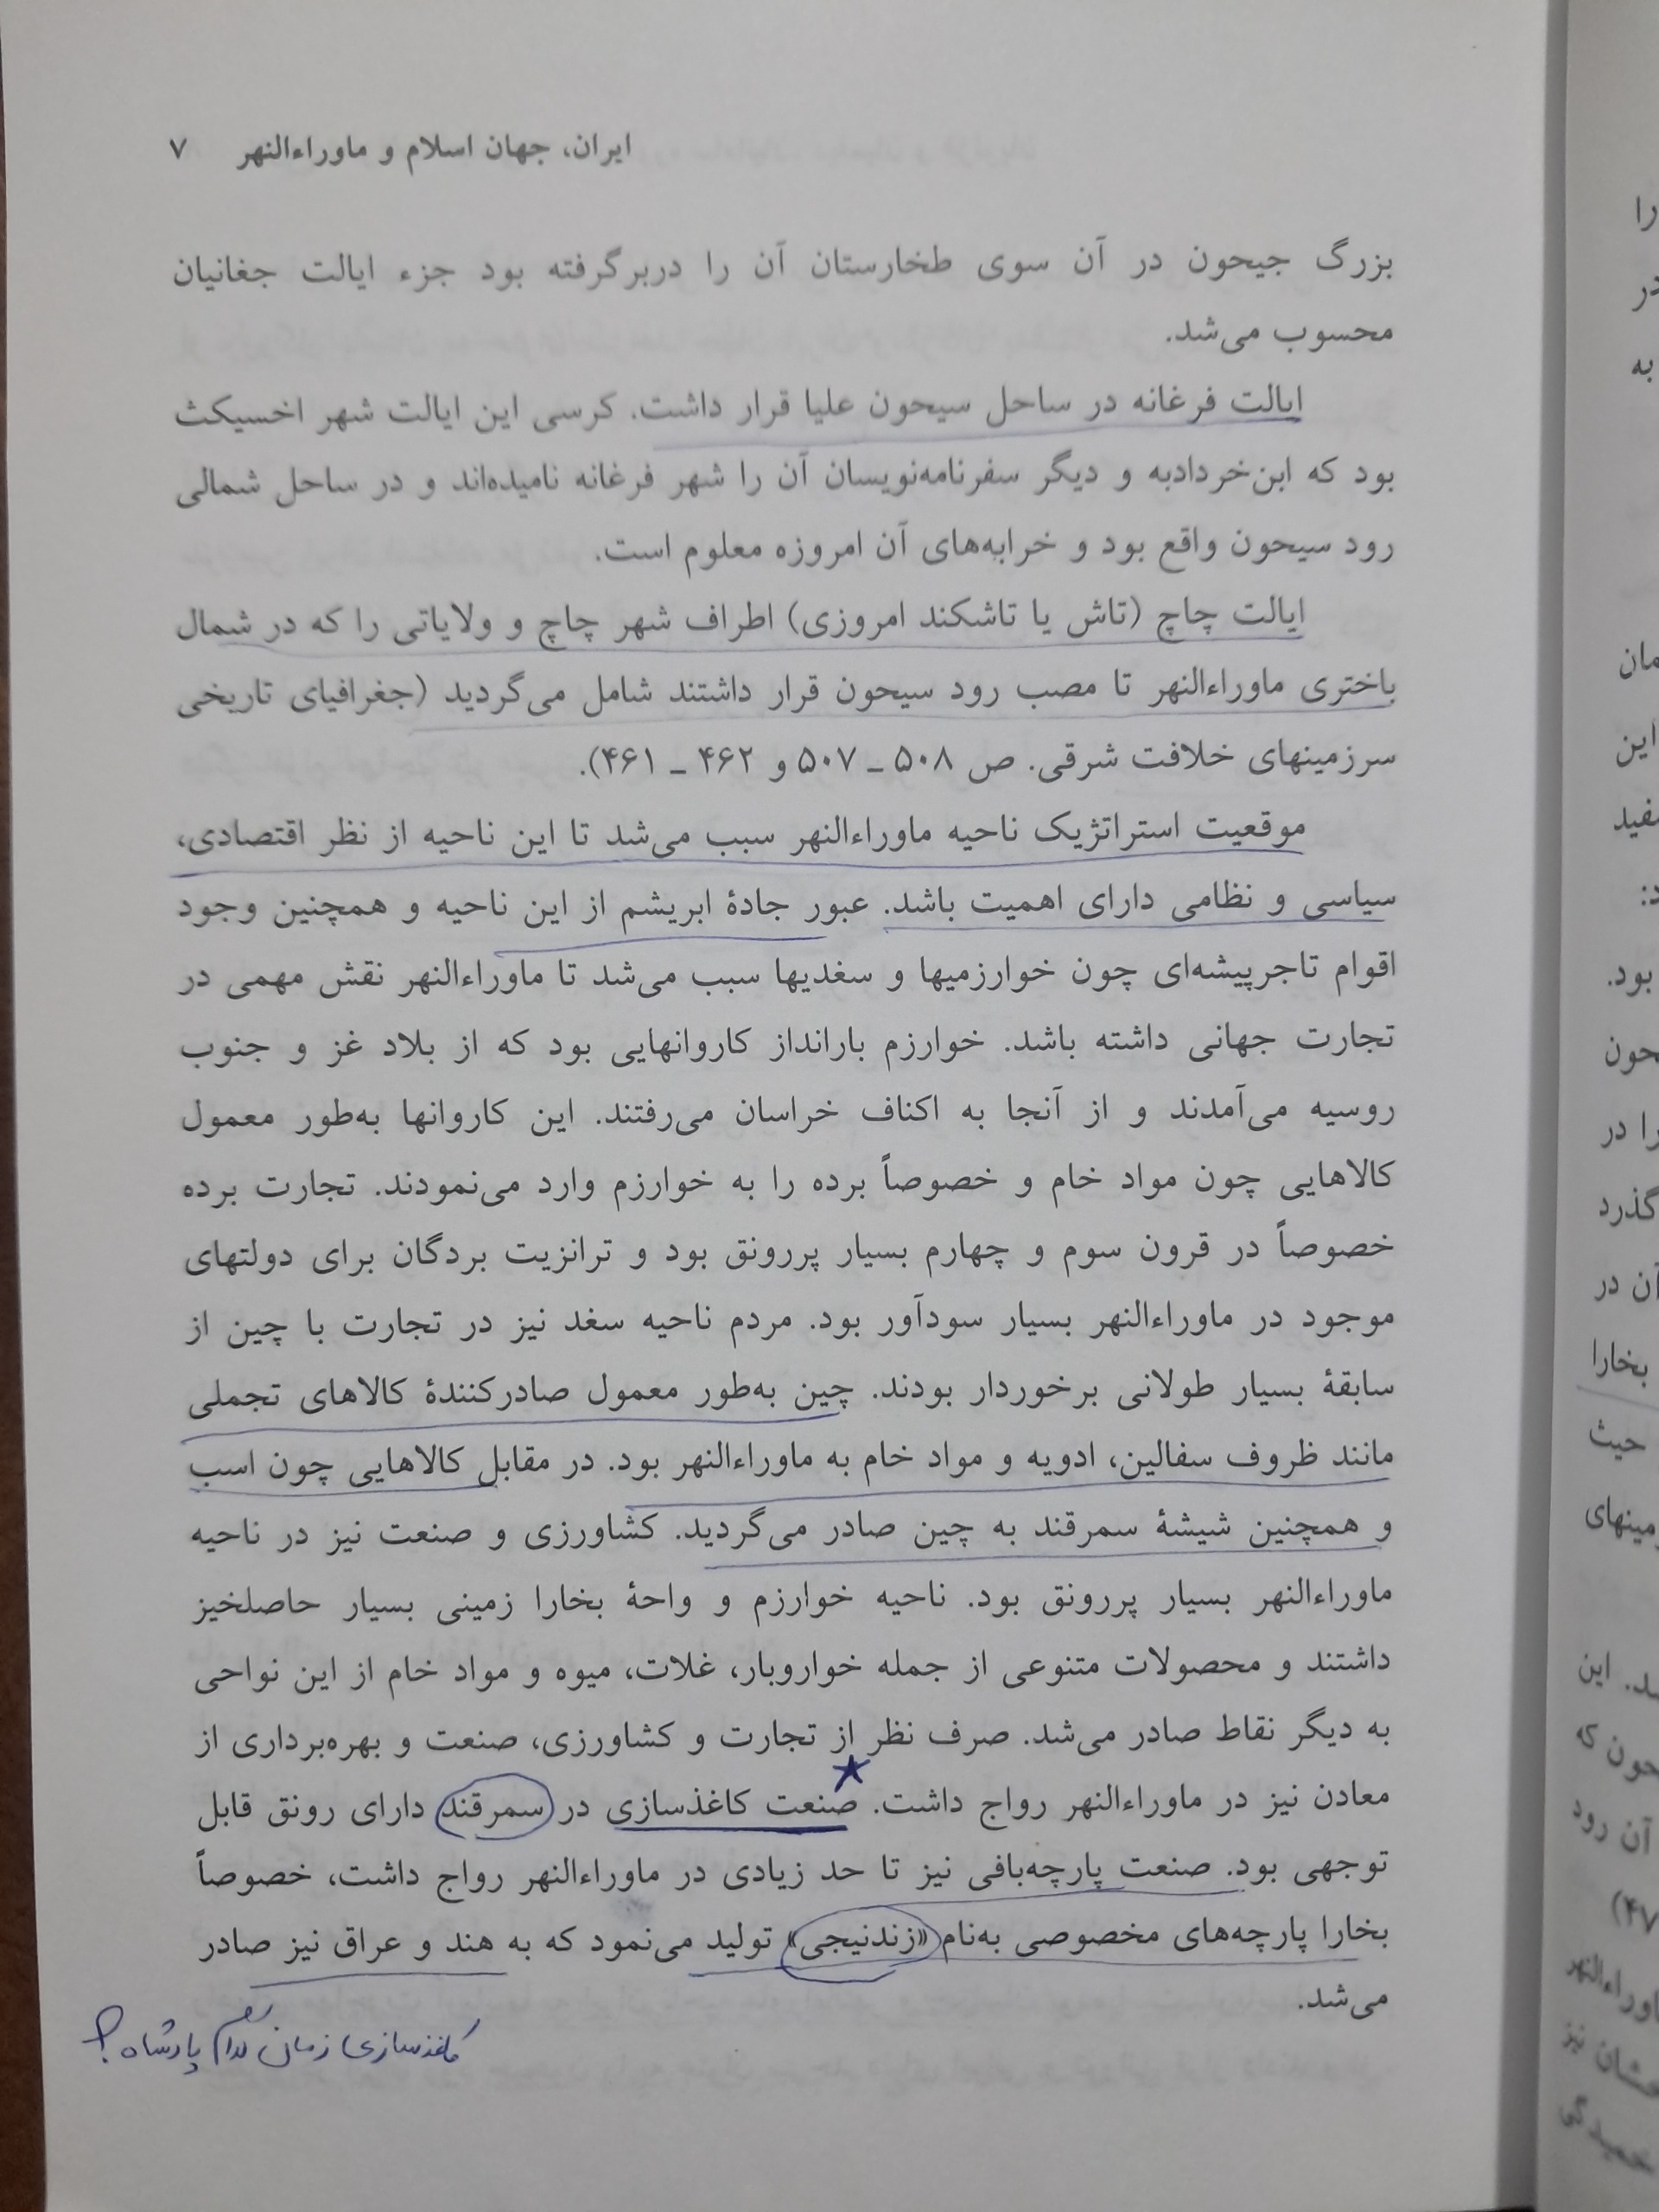 ایران، جهان اسلام و ماوراءالنهر ۷
بزرگ جیحون در آن سوی طخارستان آن را دربرگرفته بود جزء ایالت جغانیان
محسوب می‌شد.
ایالت فرغانه در ساحل سیحون علیا قرار داشت. کرسی این ایالت شهر اخسیکث
بود که ابن‌خردادبه و دیگر سفرنامه‌نویسان آن را شهر فرغانه نامیده‌اند و در ساحل شمالی
رود سیحون واقع بود و خرابه‌های آن امروزه معلوم است.
ایالت چاچ (تاش یا تاشکند امروزی) اطراف شهر چاچ و ولایاتی را که در شمال
باختری ماوراءالنهر تا مصب رود سیحون قرار داشتند شامل می‌گردید (جغرافیای تاریخی
سرزمینهای خلافت شرقی. ص ۵۰۸ ـ ۵۰۷ و ۴۶۲ ـ ۴۶۱).
موقعیت استراتژیک ناحیه ماوراءالنهر سبب می‌شد تا این ناحیه از نظر اقتصادی،
سیاسی و نظامی دارای اهمیت باشد. عبور جادۀ ابریشم از این ناحیه و همچنین وجود
اقوام تاجرپیشه‌ای چون خوارزمیها و سغدیها سبب می‌شد تا ماوراءالنهر نقش مهمی در
تجارت جهانی داشته باشد. خوارزم بارانداز کاروانهایی بود که از بلاد غز و جنوب
روسیه می‌آمدند و از آنجا به اکناف خراسان می‌رفتند. این کاروانها به‌طور معمول
کالاهایی چون مواد خام و خصوصاً برده را به خوارزم وارد می‌نمودند. تجارت برده
خصوصاً در قرون سوم و چهارم بسیار پررونق بود و ترانزیت بردگان برای دولتهای
موجود در ماوراءالنهر بسیار سودآور بود. مردم ناحیه سغد نیز در تجارت با چین از
سابقۀ بسیار طولانی برخوردار بودند. چین به‌طور معمول صادرکنندۀ کالاهای تجملی
مانند ظروف سفالین، ادویه و مواد خام به ماوراءالنهر بود. در مقابل کالاهایی چون اسب
و همچنین شیشۀ سمرقند به چین صادر می‌گردید. کشاورزی و صنعت نیز در ناحیه
ماوراءالنهر بسیار پررونق بود. ناحیه خوارزم و واحۀ بخارا زمینی بسیار حاصلخیز
داشتند و محصولات متنوعی از جمله خواروبار، غلات، میوه و مواد خام از این نواحی
به دیگر نقاط صادر می‌شد. صرف نظر از تجارت و کشاورزی، صنعت و بهره‌برداری از
معادن نیز در ماوراءالنهر رواج داشت. صنعت کاغذسازی در سمرقند دارای رونق قابل
توجهی بود. صنعت پارچه‌بافی نیز تا حد زیادی در ماوراءالنهر رواج داشت، خصوصاً
بخارا پارچه‌های مخصوصی به‌نام «زندنیجی» تولید می‌نمود که به هند و عراق نیز صادر
می‌شد.
کاغذسازی زمان کدام پادشاه؟
را
در
به
این
بود.
را در
گذرد
آن در
بخارا
حیث
آن رود